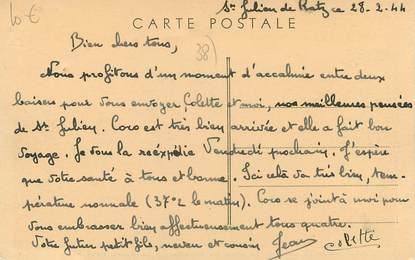 10 €
St Julien de Ratz ce 28-2-44
CARTE POSTALE
Bien chers tous,
38)
Nous profitons d'un moment d'accalmie entre deux
baisers pour vous envoyer, Colette et moi, nos meilleures pensées
de St Julien. Coco est très bien arrivée et elle a fait bon
voyage. Je vous la réexpédie Vendredi prochain. J'espère
que votre santé à tous est bonne. Ici cela va très bien, tem-
pérature normale (37°2 le matin). Coco se joint à moi pour
vous embrasser bien affectueusement tous quatre.
Votre futur petit fils, neveu et cousin Jean
Colette